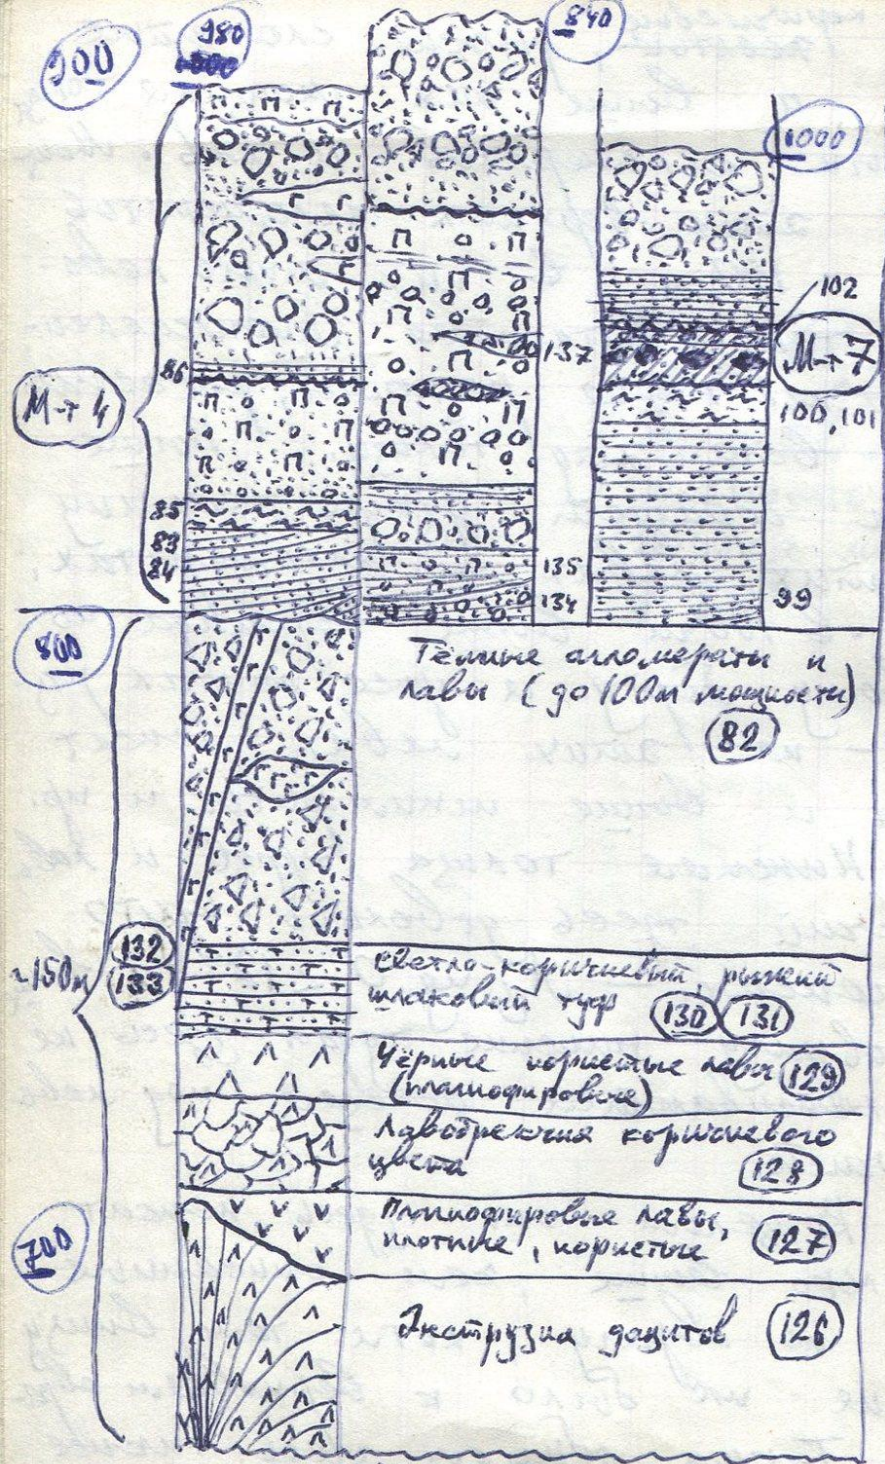 900
980
1000
840
1000
102
137
М-т 7
86
М-т 4
100, 101
85
83
84
135
134
99
800
Тёмные агломераты и
лавы (до 100м мощности)
82
132
133
~150м
светло-коричневый, рыжий
шлаковый туф
130 131
Чёрные пористые лавы 129
(плагиофировые)
Лавобрекчия коричневого
цвета
128
700
Плагиофировые лавы,
плотные, пористые 127
Экструзия дацитов 126